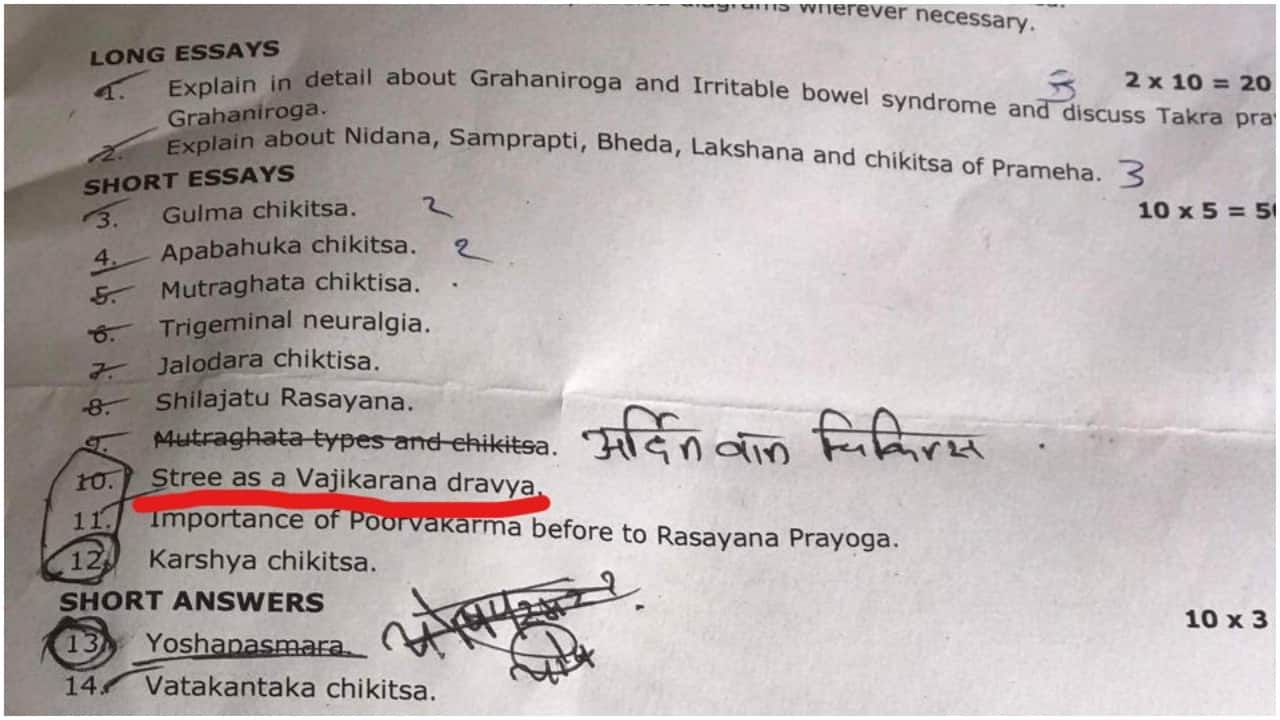 diagrams wherever necessary.
LONG ESSAYS
2 x 10 = 20
1. Explain in detail about Grahaniroga and Irritable bowel syndrome and discuss Takra
Grahaniroga.
2. Explain about Nidana, Samprapti, Bheda, Lakshana and chikitsa of Prameha. 3
SHORT ESSAYS
10 x 5 =
3. Gulma chikitsa. 2
4. Apabahuka chikitsa. 2
5. Mutraghata chiktisa.
6. Trigeminal neuralgia.
7. Jalodara chiktisa.
8. Shilajatu Rasayana.
9. Mutraghata types and chikitsa.
10. Stree as a Vajikarana dravya.
11. Importance of Poorvakarma before to Rasayana Prayoga.
12. Karshya chikitsa.
SHORT ANSWERS
10 x 3
13. Yoshapasmara.
14. Vatakantaka chikitsa.